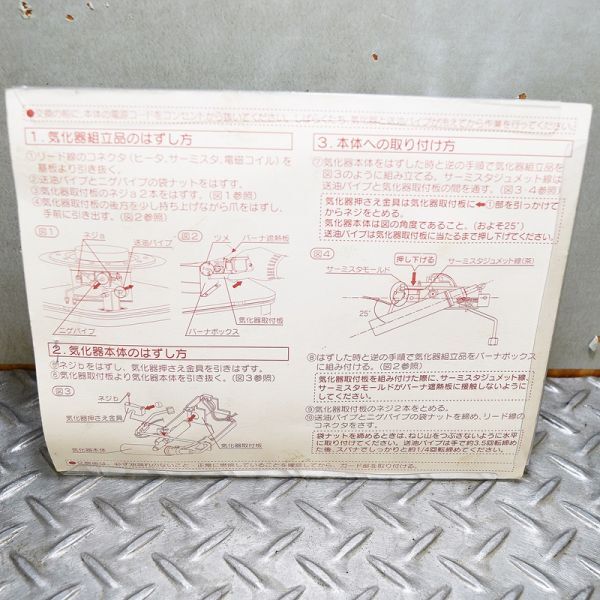 ●交換の際に、本体の電源コードをコンセントから抜いてください。しばらくたち、気化器と送油パイプが冷えてから作業を行ってください。
1. 気化器組立品のはずし方
①リード線のコネクタ(ヒータ、サーミスタ、電磁コイル)を
基板より引き抜く。
②送油パイプとニゲパイプの袋ナットをはずす。
③気化器取付板のネジa2本をはずす。(図1参照)
④気化器取付板の後方を少し持ち上げながら爪をはずし、
手前に引き出す。(図2参照)
図1
ネジa
送油パイプ
ニゲパイプ
図2
ツメ
バーナ遮熱板
気化器取付板
バーナボックス
2. 気化器本体のはずし方
⑤ネジbをはずし、気化器押さえ金具を引きはずす。
⑥気化器取付板より気化器本体を引き抜く。(図3参照)
図3
ネジb
気化器押さえ金具
気化器本体
気化器取付板
3. 本体への取り付け方
⑦気化器本体をはずした時と逆の手順で気化器組立品を
図3のように組み立てる。サーミスタジュメット線は
送油パイプと気化器取付板の間を通す。(図3・4参照)
気化器押さえ金具は気化器取付板に⇐①部を引っかけて
からネジをとめる。
気化器本体は図の角度であること。(およそ25°)
送油パイプは気化器取付板に当たるまで押し下げてください。
図4
押し下げる
サーミスタジュメット線(茶)
サーミスタモールド
25°
⑧はずした時と逆の手順で気化器組立品をバーナボックス
に組み付ける。(図2参照)
気化器取付板を組み付けた際に、サーミスタジュメット線、
サーミスタモールドがバーナ遮熱板に接触しないように
してください。
⑨気化器取付板のネジ2本をとめる。
⑩送油パイプとニゲパイプの袋ナットを締め、リード線の
コネクタをさす。
袋ナットを締めるときは、ねじ山をつぶさないように水平
に取り付けてください。送油パイプは手で約3.5回転締め
た後、スパナでしっかりと約1/4回転締めてください。